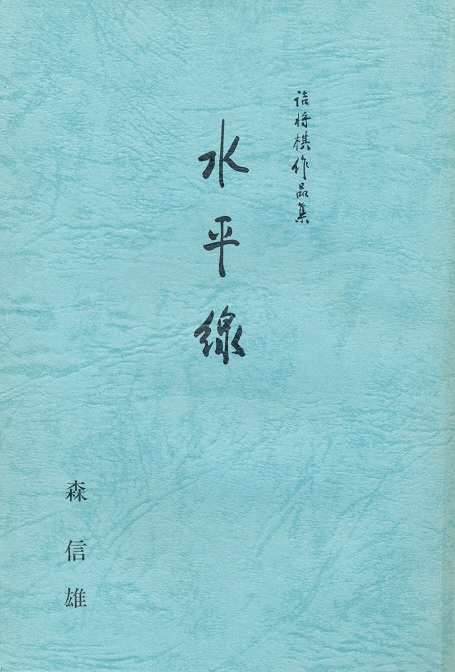 詰将棋作品集
水平線
森信雄